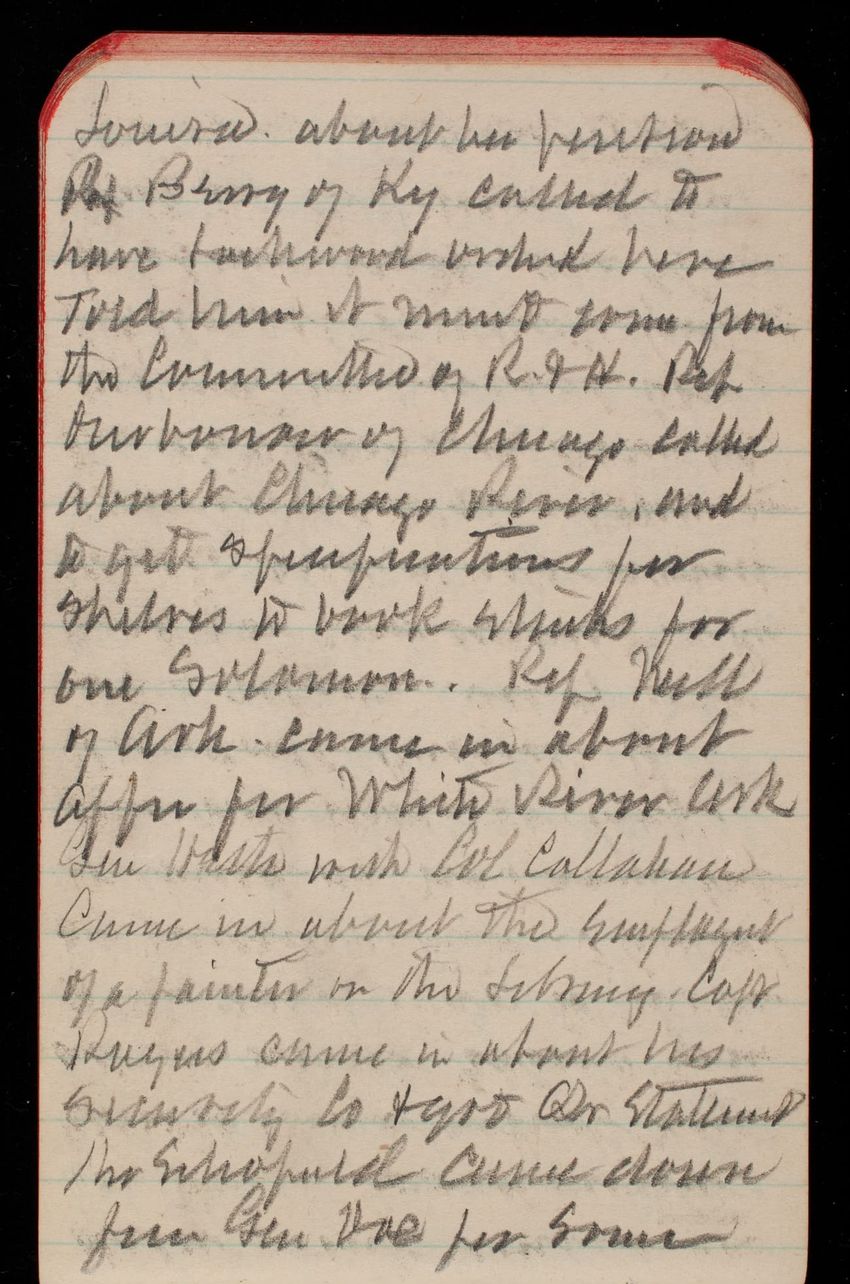 Louisa. about her position
Rep Berry of Ky called to
have Lockwood ordered here
Told him it must come from
the Committee of R. & H. Rep
Durborow of Chicago called
about Chicago River, and
to get specifications for
shelves to book stacks for
one Solomon. Rep Neill
of Ark. came in about
affr for White River Ark
Gen with Col Callahan
Came in about the
of a painter on the Library. Capt
Rogers came in about his
Security Co & got Qr Statement
Mr Schofield came down
from Gen for some